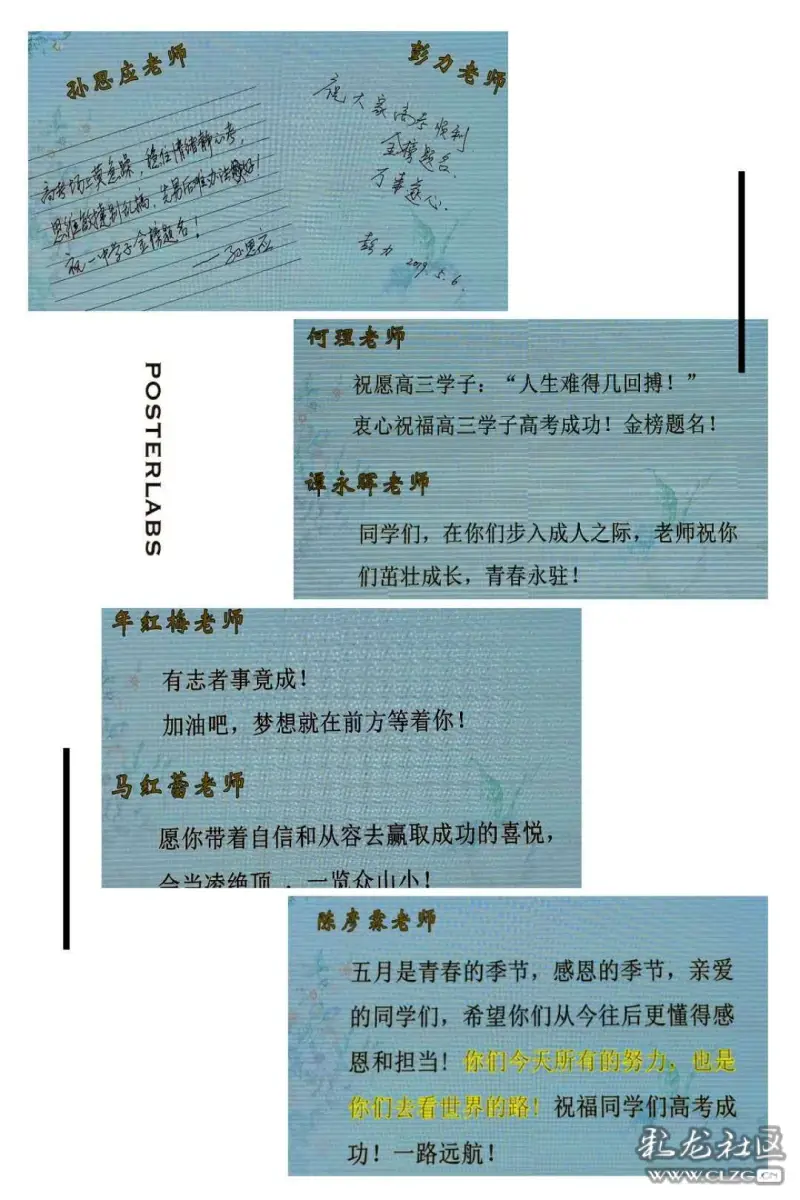 孙思应老师
高考场上莫急躁，稳住情绪静心考，
思维敏捷别乱搞，先易后难办法好！
祝一中学子金榜题名！
——孙思应
彭力老师
祝大家高考顺利
金榜题名
万事遂心
彭力 2019.5.6.
POSTERLABS
何理老师
祝愿高三学子：“人生难得几回搏！”
衷心祝福高三学子高考成功！金榜题名！
谭永晖老师
同学们，在你们步入成人之际，老师祝你
们茁壮成长，青春永驻！
年红梅老师
有志者事竟成！
加油吧，梦想就在前方等着你！
马红蕾老师
愿你带着自信和从容去赢取成功的喜悦，
会当凌绝顶，一览众山小！
陈彦霖老师
五月是青春的季节，感恩的季节，亲爱
的同学们，希望你们从今往后更懂得感
恩和担当！你们今天所有的努力，也是
你们去看世界的路！祝福同学们高考成
功！一路远航！
彩龙社区
WWW.CLZG.CN